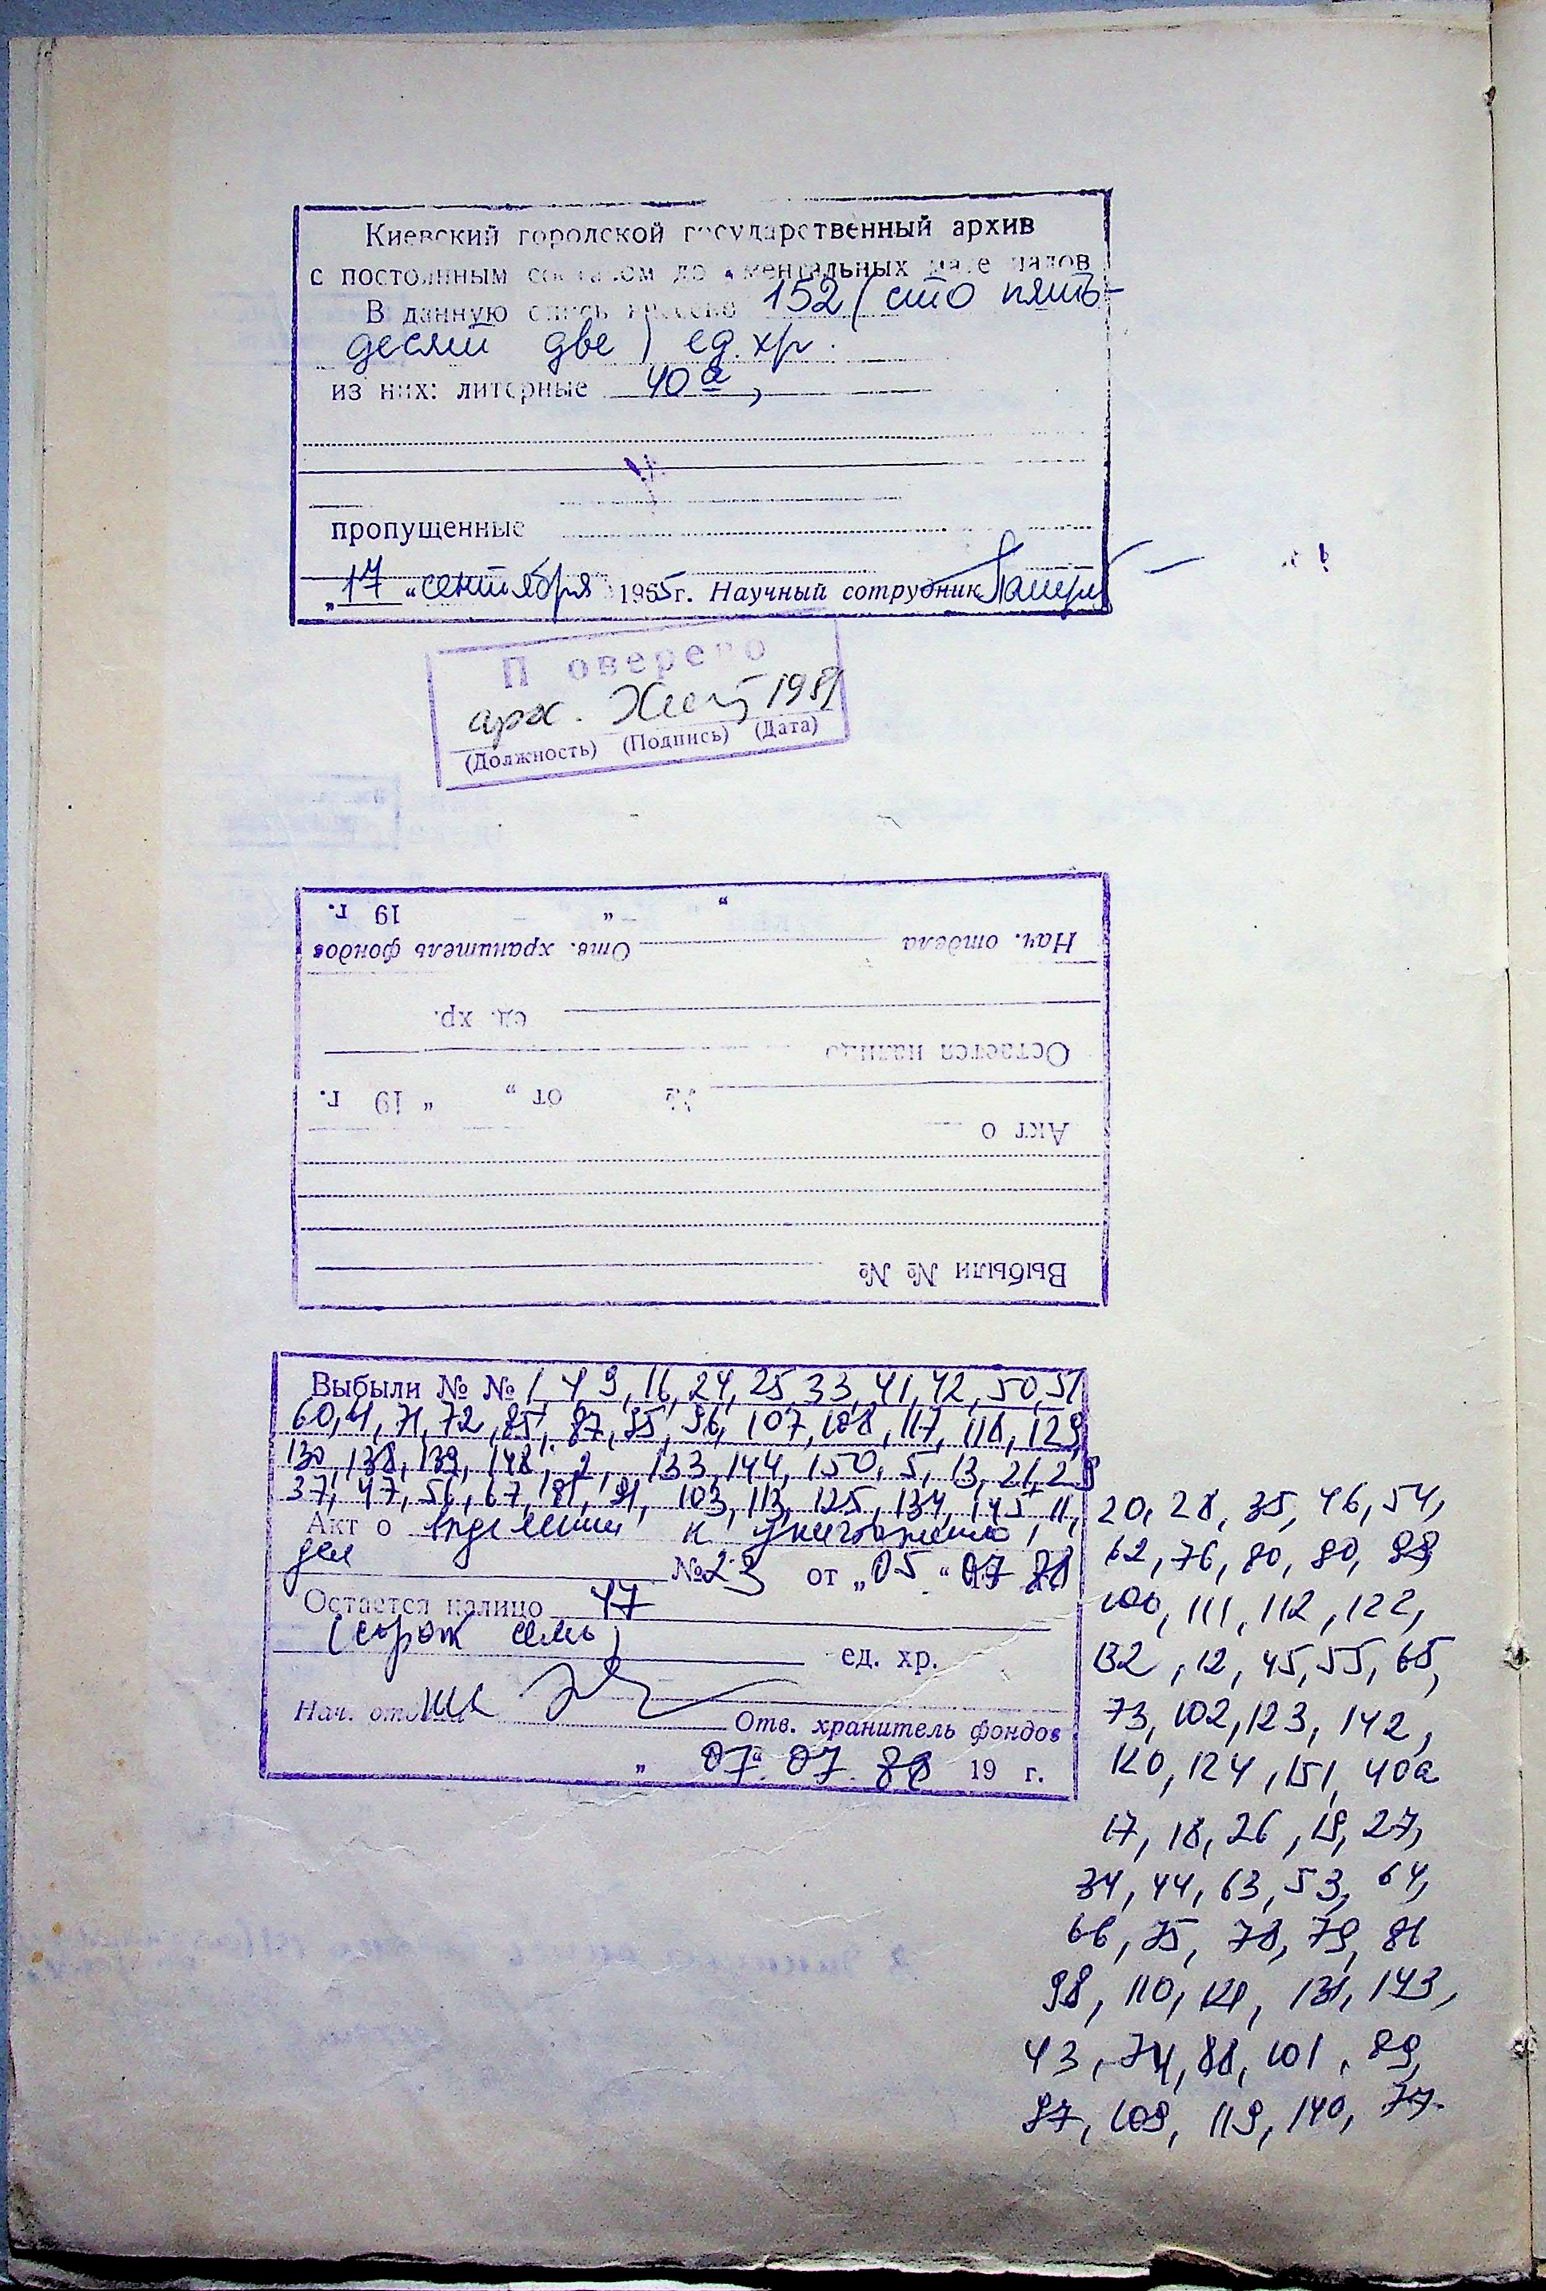 Киевский городской государственный архив
с постоянным составом документальных материалов
В данную опись внесено 152 (сто пять-
десят две) ед. хр.
из них: литерные 40а,
пропущенные
„17“ сентября 1965 г. Научный сотрудник
Проверено
арх. 1981
(Должность) (Подпись) (Дата)
Выбыли № №
Акт о
№ от „ “ 19 г.
Остается налицо
ед. хр.
Нач. отдела Отв. хранитель фондов
„ “ 19 г.
Выбыли № № 1, 4, 9, 16, 24, 25, 33, 41, 42, 50, 51
60, 61, 71, 72, 85, 87, 95, 96, 107, 108, 117, 118, 129,
130, 138, 139, 148, 2, 133, 144, 150, 5, 13, 21, 29
37, 47, 56, 67, 81, 91, 103, 113, 125, 134, 145, 11,
Акт о выделении к уничтожению,
дел
№ 23 от „05“ 07 88
Остается налицо 47
(сорок семь)
ед. хр.
Нач. отдела Отв. хранитель фондов
„ 07“. 07. 88 19 г.
20, 28, 35, 46, 54,
62, 76, 80, 90, 99,
100, 111, 112, 122,
132, 12, 45, 55, 65,
73, 102, 123, 142,
120, 124, 151, 40а
17, 18, 26, 19, 27,
34, 44, 63, 53, 64,
66, 75, 78, 79, 86
98, 110, 121, 131, 143,
43, 74, 88, 101, 89,
97, 109, 119, 140, 77.